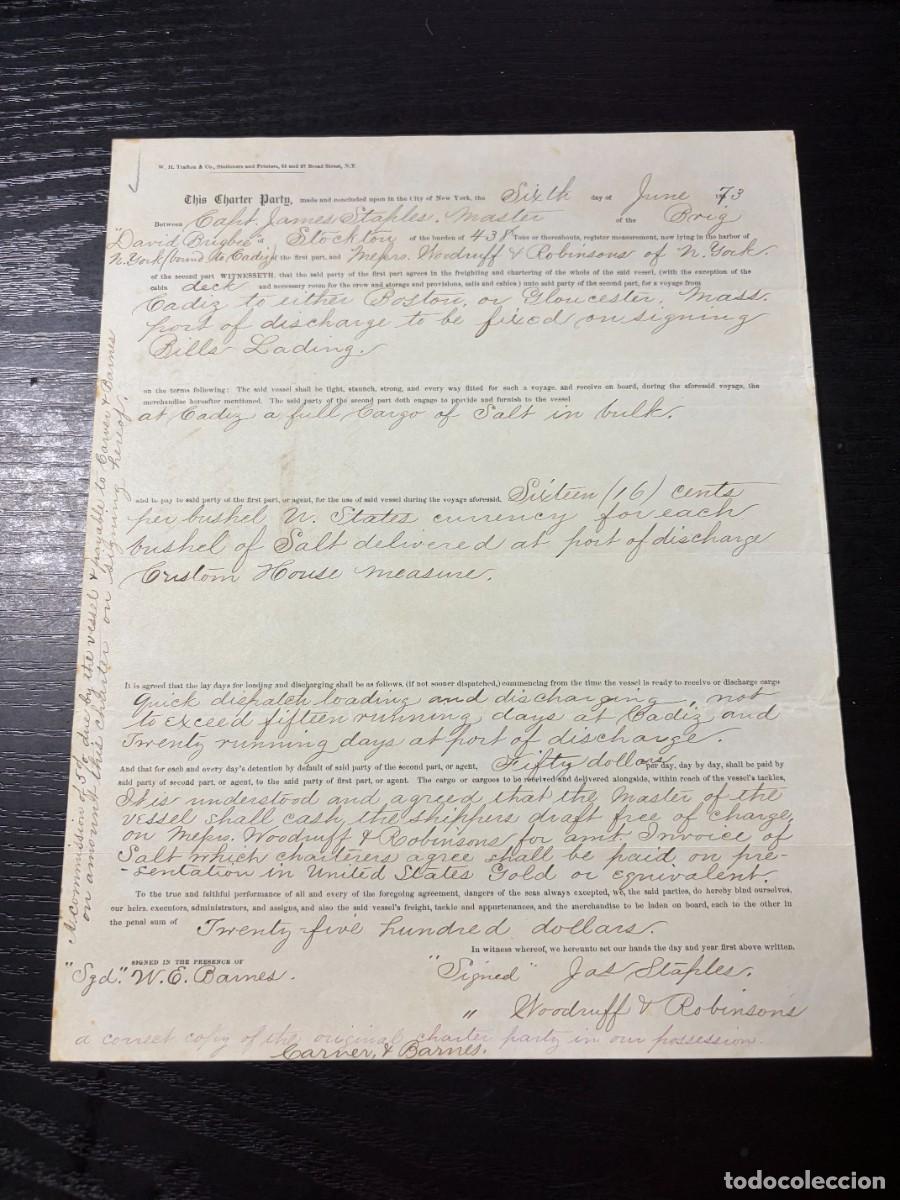 W. H. Trafton & Co., Stationers and Printers, 54 and 57 Broad Street, N.Y.
This Charter Party, made and concluded upon in the City of New York, the Sixth day of June 73
Between Capt. James Staples, Master of the Brig
"David Bugbee" of Stockton of the burden of 438 Tons or thereabouts, register measurement, now lying in the harbor of
N. York bound to Cadiz of the first part, and Messrs. Woodruff & Robinsons of N. York
of the second part WITNESSETH, that the said party of the first part agrees in the freighting and chartering of the whole of the said vessel, (with the exception of the
cabin deck and necessary room for the crew and storage and provisions, sails and cables) unto said party of the second part, for a voyage from
Cadiz to either Boston, or Gloucester, Mass.
port of discharge to be fixed on signing
Bills Lading.
on the terms following: The said vessel shall be tight, staunch, strong, and every way fitted for such a voyage, and receive on board, during the aforesaid voyage, the
merchandise hereafter mentioned. The said party of the second part doth engage to provide and furnish to the vessel
at Cadiz a full Cargo of Salt in bulk.
and to pay to said party of the first part, or agent, for the use of said vessel during the voyage aforesaid, Sixteen (16) cents
per bushel U. States currency for each
bushel of Salt delivered at port of discharge
Custom House measure.
It is agreed that the lay days for loading and discharging shall be as follows, (if not sooner dispatched,) commencing from the time the vessel is ready to receive or discharge cargo
Quick dispatch loading and discharging, not
to exceed fifteen running days at Cadiz and
Twenty running days at port of discharge.
And that for each and every day's detention by default of said party of the second part, or agent, Fifty dollars per day, day by day, shall be paid by
said party of second part, or agent, to the said party of first part, or agent. The cargo or cargoes to be received and delivered alongside, within reach of the vessel's tackles,
It is understood and agreed that the Master of the
vessel shall cash the shippers draft free of charge
on Messrs. Woodruff & Robinsons for amt Invoice of
Salt which charterers agree shall be paid on pre-
-sentation in United States Gold or equivalent.
To the true and faithful performance of all and every of the foregoing agreement, dangers of the seas always excepted, we, the said parties, do hereby bind ourselves,
our heirs, executors, administrators, and assigns, and also the said vessel's freight, tackle and appurtenances, and the merchandise to be laden on board, each to the other in
the penal sum of Twenty five hundred dollars.
In witness whereof, we hereunto set our hands the day and year first above written.
SIGNED IN THE PRESENCE OF
"Sgd." W. E. Barnes. "Signed" Jas Staples.
" Woodruff & Robinsons
a correct copy of the original charter party in our possession.
Carver, & Barnes.
A commission of 5% due by the vessel & payable to Carver & Barnes
on amount this charter on signing hereof.
todocoleccion